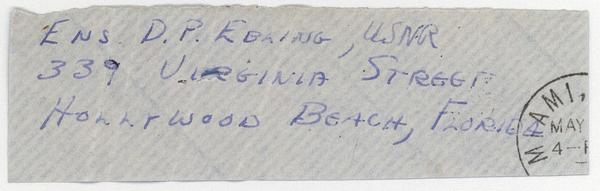 ENS. D.P. EBLING, USNR
339 VIRGINIA STREET
HOLLYWOOD BEACH, FLORIDA
MIAMI,
MAY
4-P